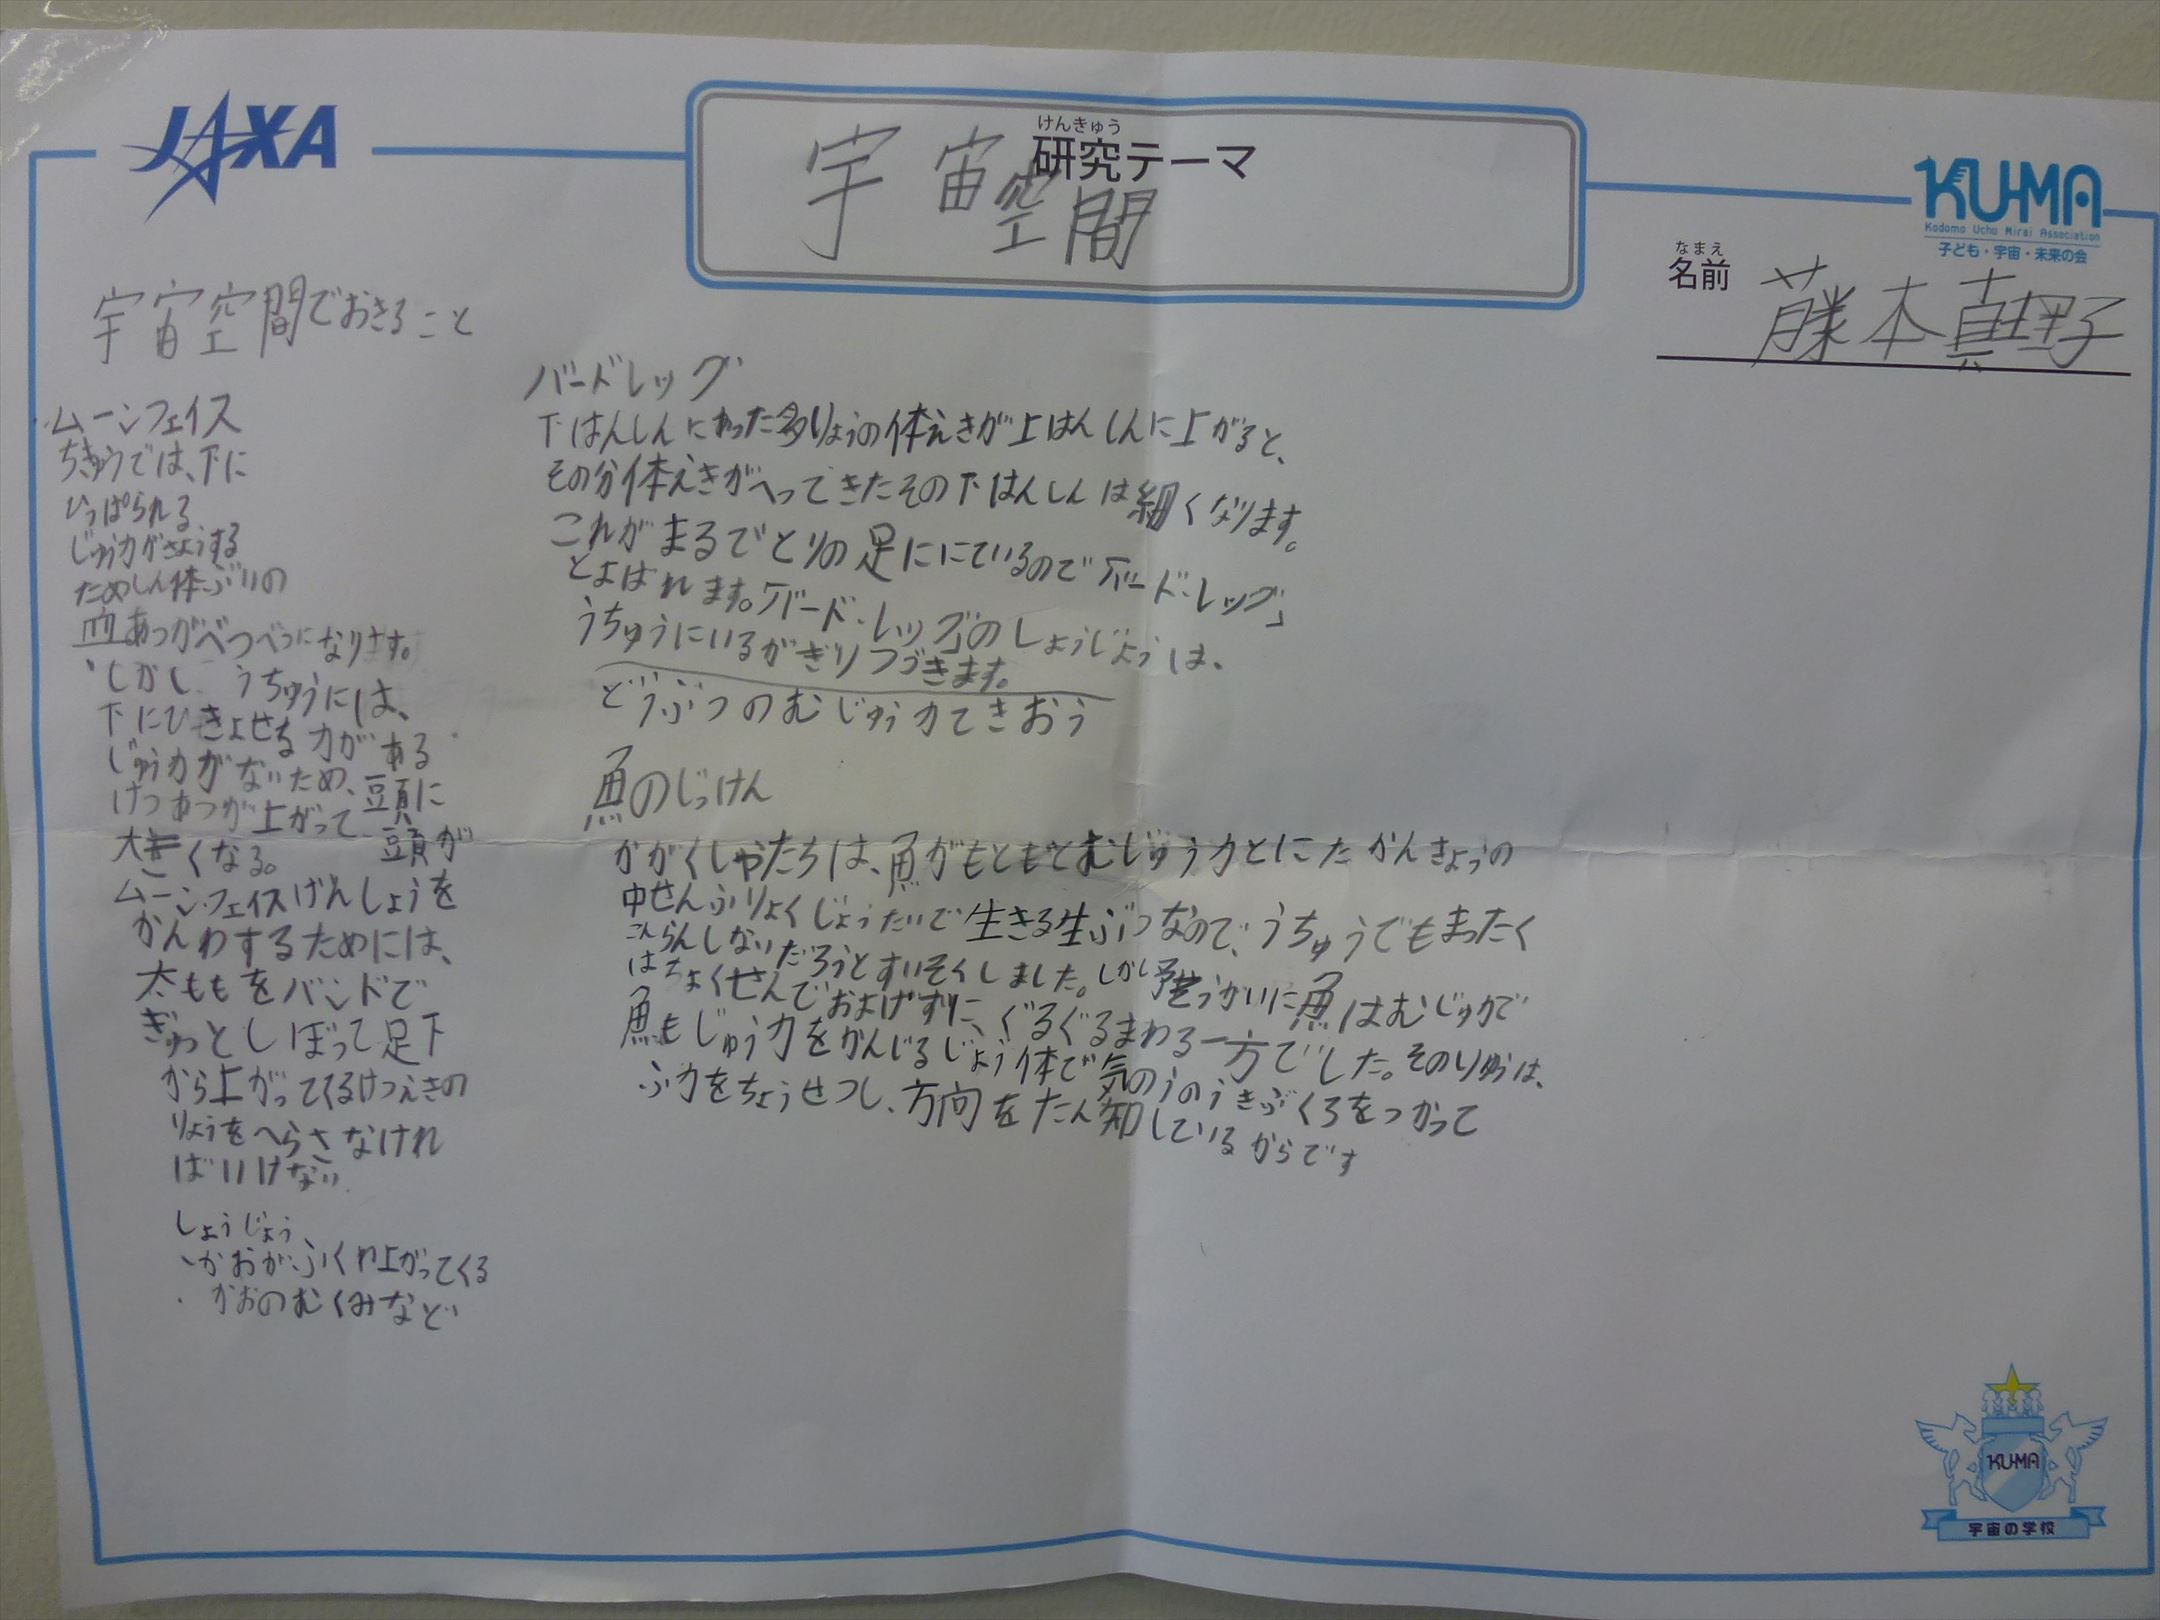 JAXA
けんきゅう
研究テーマ
宇宙空間
KU-MA
Kodomo Uchu Mirai Association
子ども・宇宙・未来の会
なまえ
名前
藤本真理子
宇宙空間でおきること
ムーンフェイス
ちきゅうでは、下に
ひっぱられる
じゅう力がさようする
ためしん体ぶいの
血あつがべつべつになります。
しかし うちゅうには、
下にひきよせる力がある
じゅう力がないため、
けつあつが上がって頭に
頭が
大きくなる。
ムーン・フェイスげんしょうを
かんわするためには、
太ももをバンドで
ぎゅっとしぼって足下
から上がってくるけつえきの
りょうをへらさなけれ
ばいけない
しょうじょう
・かおがふくれ上がってくる
・かおのむくみなど
バードレッグ
下はんしんにあった多りょうの体えきが上はんしんに上がると、
その分体えきがへってきたその下はんしんは細くなります。
これがまるでとりの足ににているので「バード・レッグ」
とよばれます。「バード・レッグ」のしょうじょうは、
うちゅうにいるがぎりつづきます。
どうぶつのむじゅう力てきおう
魚のじっけん
かがくしゃたちは、魚がもともとむじゅう力とにたかんきょうの
中せんふりょくじょうたいで生きる生ぶつなので、うちゅうでもまったく
こんらんしないだろうとすいそくしました。しかし予そうがいに魚はむじゅうで
はちょくせんでおよげずに、ぐるぐるまわる一方でした。そのりゆうは、
魚もじゅう力をかんじるじょう体で気のうのうきぶくろをつかって
ふ力をちょうせつし、方向をたん知しているからです
KU-MA
宇宙の学校